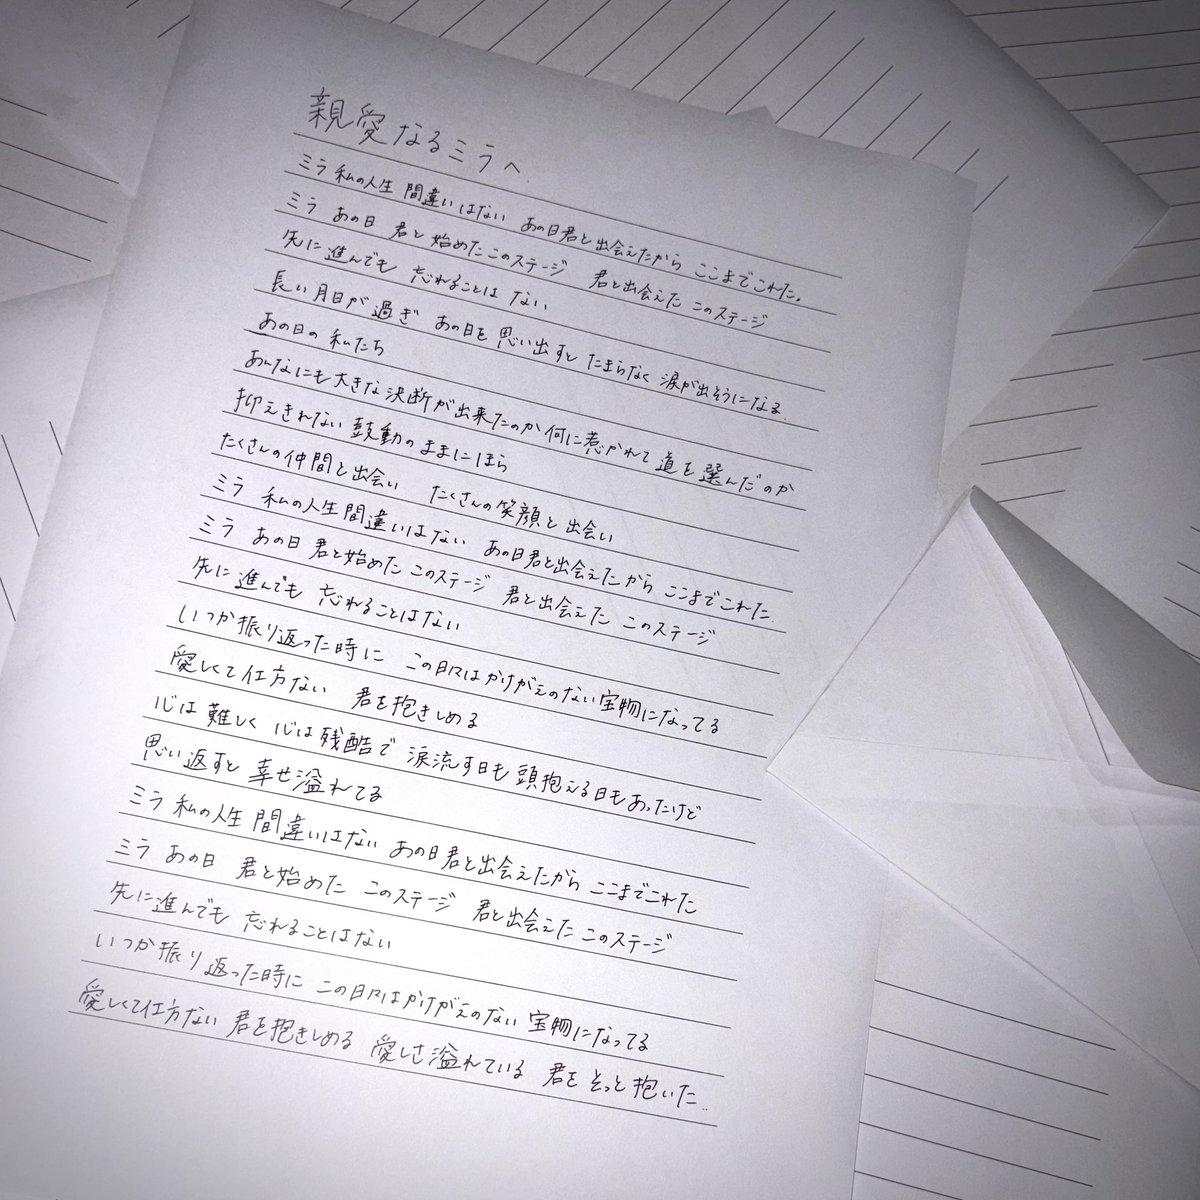 親愛なるミラへ
ミラ 私の人生 間違いはない あの日君と出会えたから ここまでこれた。
ミラ あの日 君と始めたこのステージ 君と出会えた このステージ
先に進んでも 忘れることは ない
長い月日が過ぎ あの日を思い出すと たまらなく 涙が出そうになる
あの日の 私たち
あんなにも大きな決断が出来たのか 何に惹かれて 道を選んだのか
抑えきれない 鼓動のままにほら
たくさんの仲間と出会い たくさんの笑顔と出会い
ミラ 私の人生間違いはない あの日君と出会えたから ここまでこれた
ミラ あの日 君と始めた このステージ 君と出会えた このステージ
先に進んでも 忘れることはない
いつか振り返った時に この日々はかけがえのない宝物になってる
愛しくて仕方ない 君を抱きしめる
心は難しく 心は残酷で 涙流す日も 頭抱える日もあったけど
思い返すと 幸せ溢れてる
ミラ 私の人生 間違いはない あの日君と出会えたから ここまでこれた
ミラ あの日 君と始めた このステージ 君と出会えた このステージ
先に進んでも 忘れることはない
いつか振り返った時に この日々はかけがえのない 宝物になってる
愛しくて仕方ない 君を抱きしめる 愛しさ溢れている 君を そっと抱いた